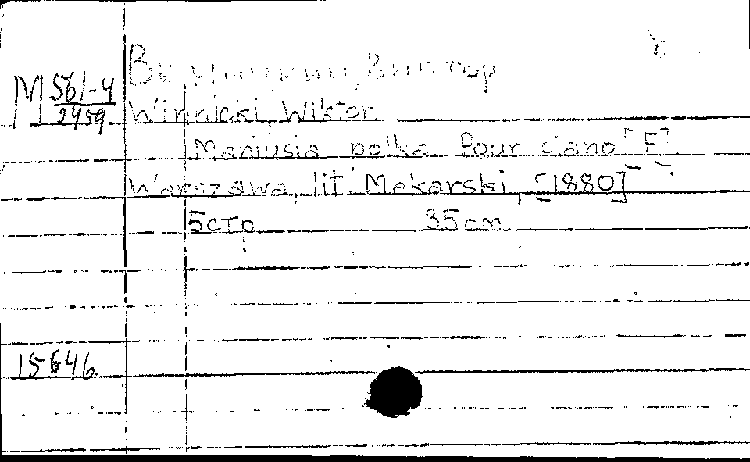 M 561-4
2959
Винницкий, Виктор
Winnicki, Wiktor
Maniusia polka Pour piano [F].
Warszawa, lit. Mekarski, [1880]
5стр 35cm
15646